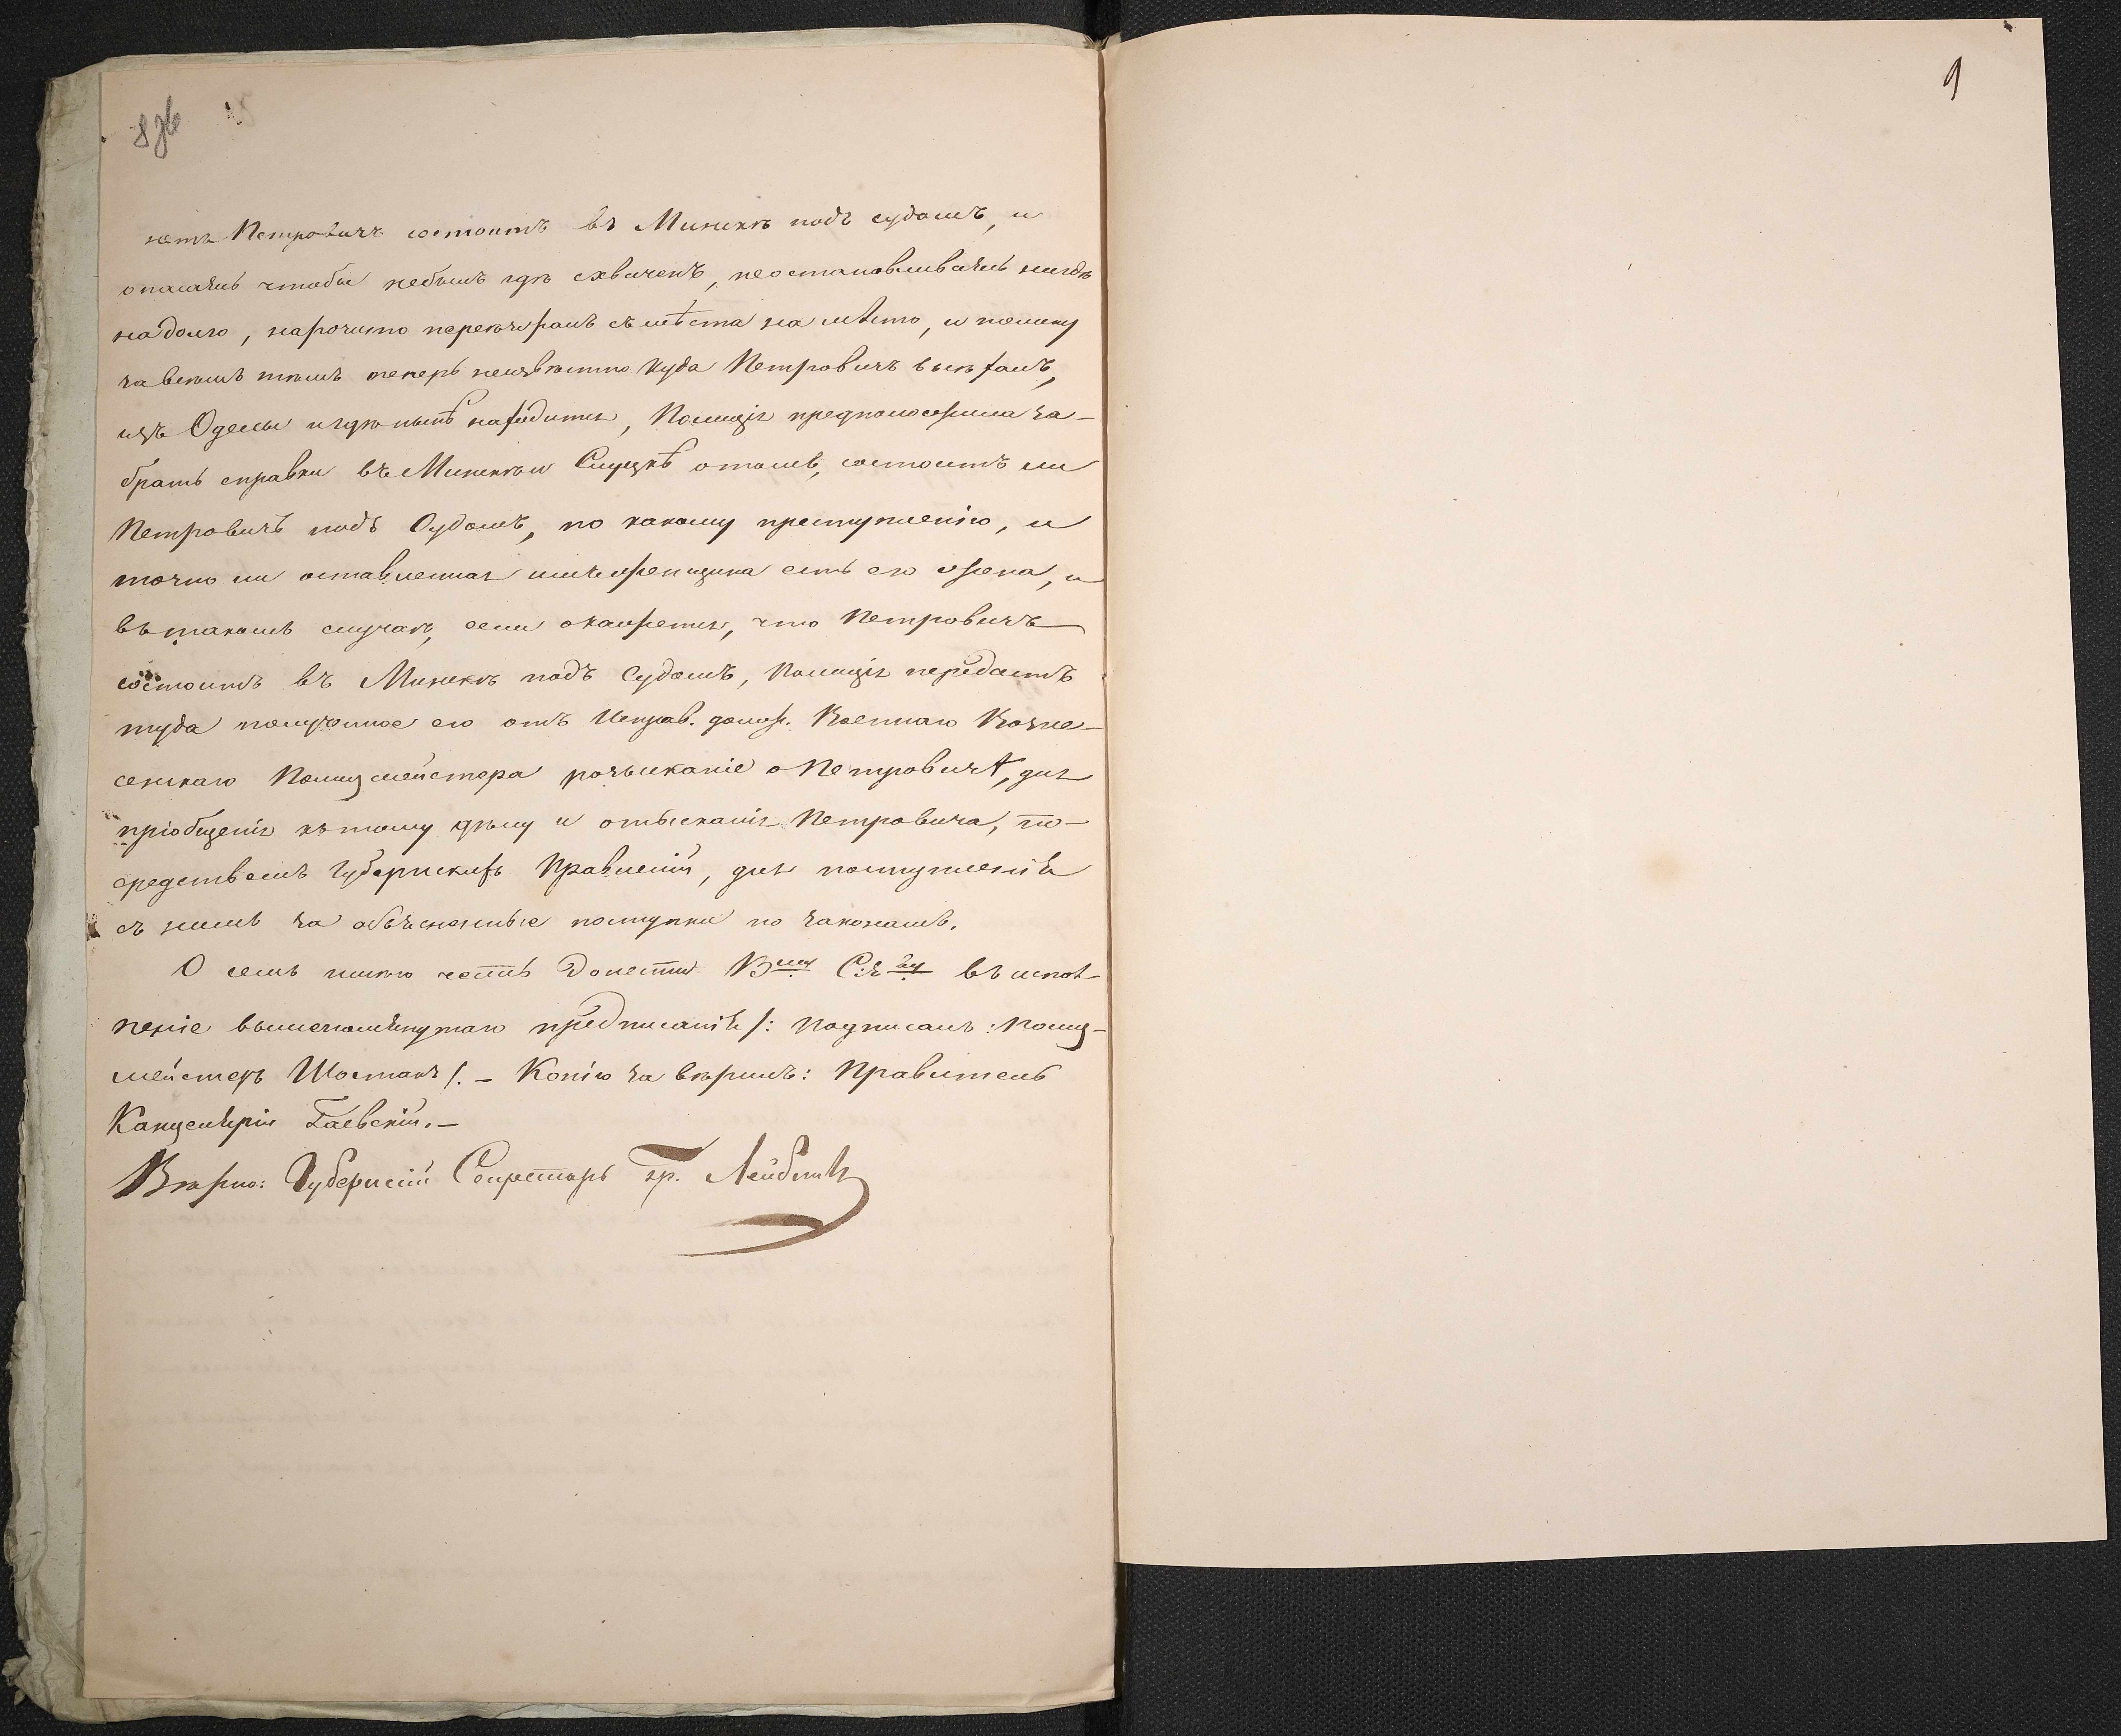 8 об
9
нетъ Петровичъ состоитъ въ Минскѣ подъ судомъ, и
опасаясь чтобы небылъ гдѣ схваченъ, неостанавливаясь нигдѣ
надолго, нарочито переѣзжалъ съ мѣста на мѣсто, и потому
за всѣмъ тѣмъ теперь неизвѣстно куда Петровичъ выѣхалъ,
изъ Одессы и гдѣ нынѣ находится, Полиція предположила за-
брать справки въ Минскѣ и Слуцкѣ о томъ, состоитъ ли
Петровичъ подъ Судомъ, по какому преступленію, и
точно ли оставленная имъ женщина есть его жена, и
въ такомъ случаѣ, если окажется, что Петровичъ
состоитъ въ Минскѣ подъ Судомъ, Полиція передастъ
туда полученное ею отъ Исправ. долж. Военнаго Возне-
сенскаго Полицмейстера розысканіе о Петровичѣ, для
пріобщенія къ тому дѣлу и отысканія Петровича, по-
средствомъ Губернскихъ Правленій, для поступленія
съ нимъ за объясненные поступки по законамъ.
О семъ имѣю честь донести В<sup>му</sup> С:я<sup>ву</sup> въ испол-
неніе вышеупомянутаго предписанія /: Подписалъ: Полиц-
мейстеръ Шостакъ /. – Копію за вѣрилъ: Правитель
Канцеляріи Гаевскій. –
Вѣрно: Губернскій Секретарь гр.